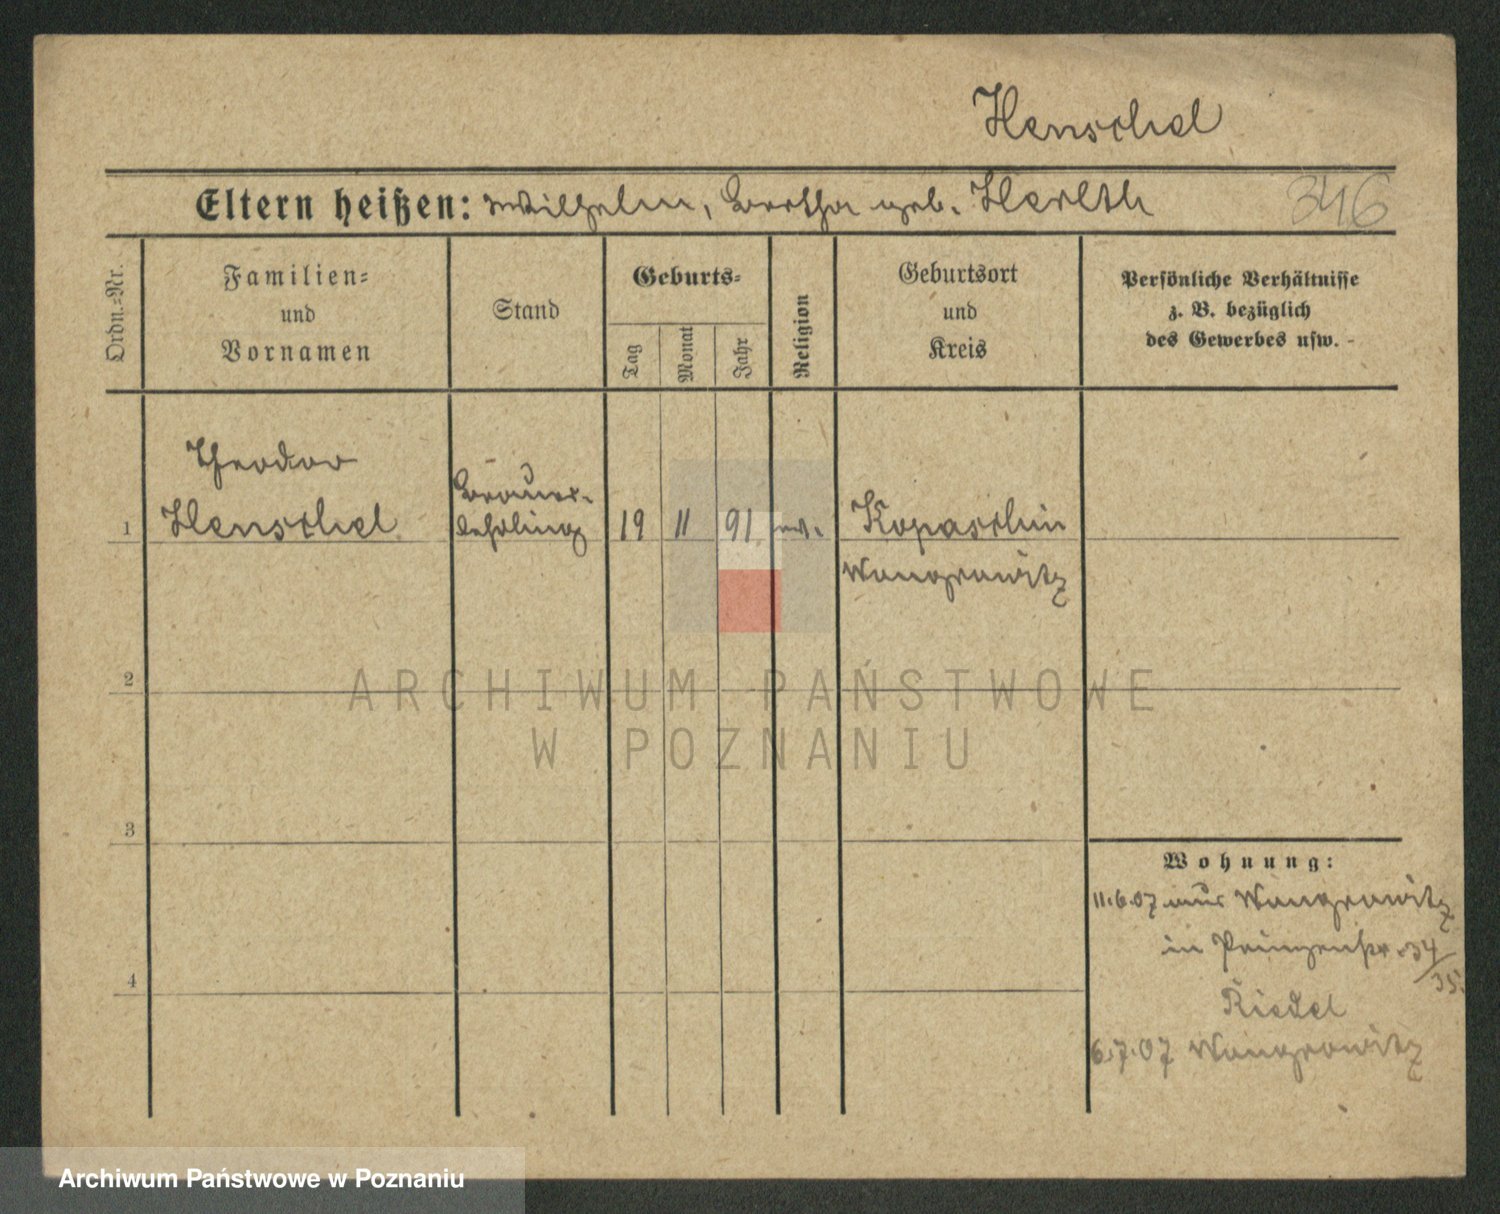 Henschel
Eltern heißen: Wilhelm, Bertha geb. Herlth
346
Ordn.-Nr.
Familien-
und
Vornamen
Stand
Geburts-
Tag
Monat
Jahr
Religion
Geburtsort
und
Kreis
Persönliche Verhältnisse
z. B. bezüglich
des Gewerbes usw.
Theodor
Brauer-
1 Henschel lehrling 19 11 91 ev. Kopaschin
Wongrowitz
2
ARCHIWUM PAŃSTWOWE
W POZNANIU
3
Wohnung:
11.6.07 aus Wongrowitz
in Prinzenstr. 34/35.
4
Riedel
6.7.07 Wongrowitz
Archiwum Państwowe w Poznaniu